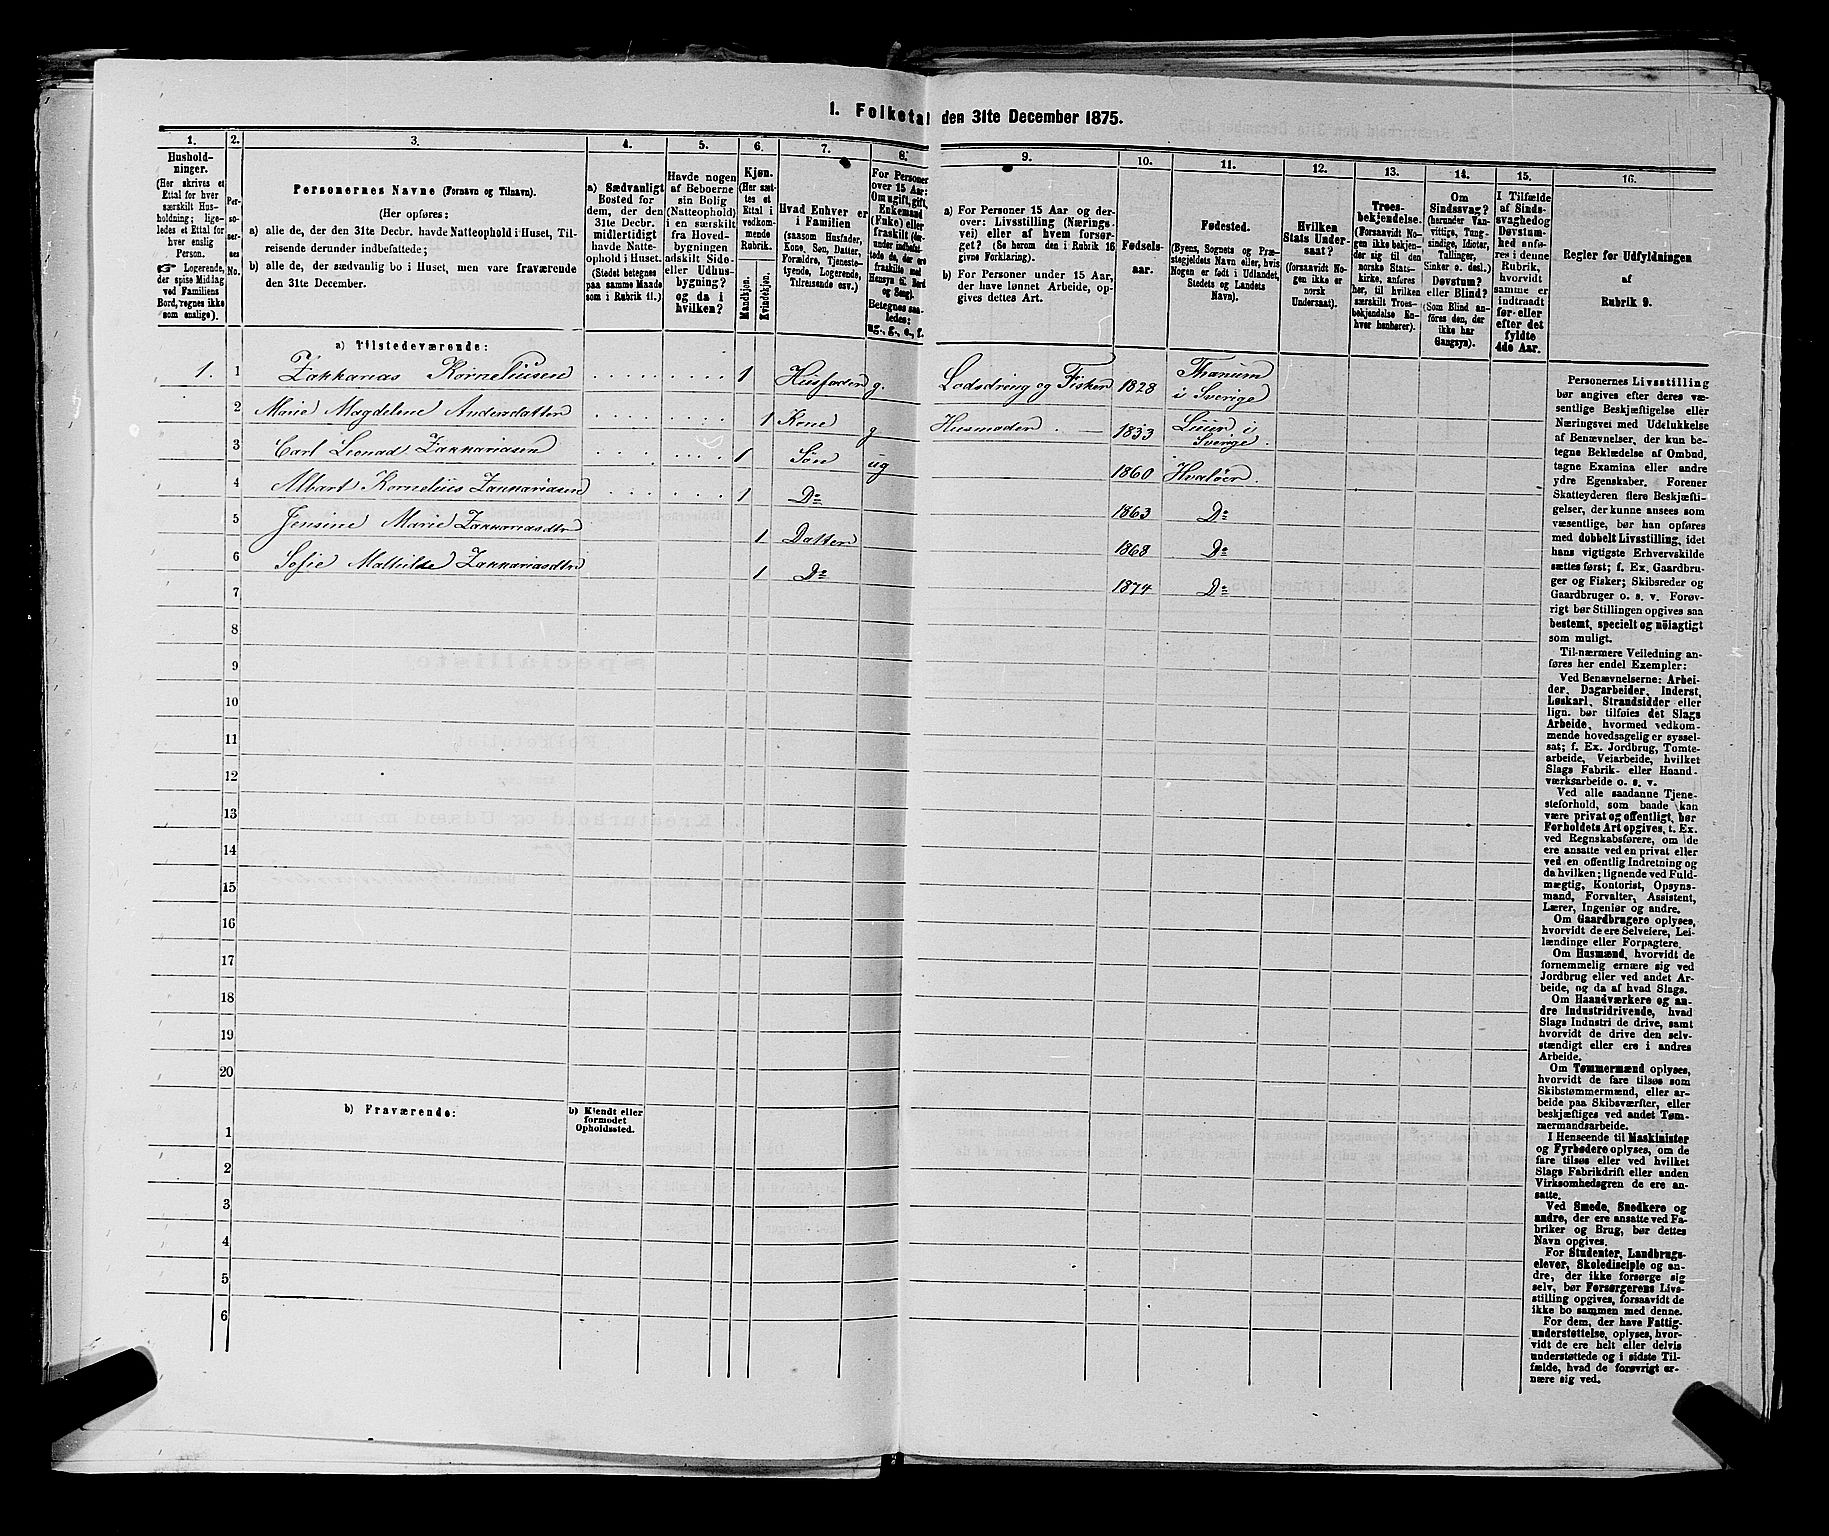 1. Folketal den 31te December 1875.
1.
Hushold-
ninger.
(Her skrives et
Ettal for hver
særskilt Hus-
holdning; lige-
ledes et Ettal for
hver enslig
Person.
☞ Logerende,
der spise Middag
ved Familiens
Bord, regnes ikke
som enslige).
2.
Per-
so-
ner-
nes
No.
3.
Personernes Navne (Fornavn og Tilnavn).
(Her opføres:
a) alle de, der den 31te Decbr. havde Natteophold i Huset, Til-
reisende derunder indbefattede;
b) alle de, der sædvanlig bo i Huset, men vare fraværende
den 31te December.
4.
a) Sædvanligt
Bosted for
dem, der den
31te Decbr.
midlertidigt
havde Natte-
ophold i Huset.
(Stedet betegnes
paa samme Maade
som i Rubrik 11.)
5.
Havde nogen
af Beboerne
sin Bolig
(Natteophold)
i en særskilt
fra Hoved-
bygningen
adskilt Side-
eller Udhus-
bygning?
og da i
hvilken?
6.
Kjøn.
(Her sæt-
tes et
Ettal i
vedkom-
mende
Rubrik.
Mandkjøn.
Kvindekjøn.
7.
Hvad Enhver er
i Familien
(saasom Husfader,
Kone, Søn, Datter,
Forældre, Tjeneste-
tyende, Logerende,
Tilreisende osv.)
8.
For Personer
over 15 Aar:
Om ugift, gift,
Enkemand
(Enke) eller
fraskilt (her-
under indbefat-
tede de, der ere
fraskilte med
Hensyn til Bord
og Seng).
Betegnes saa-
ledes:
ug., g., e., f.
9.
a) For Personer 15 Aar og der-
over: Livsstilling (Nærings-
vei) eller af hvem forsør-
get? (Se herom den i Rubrik 16
givne Forklaring).
b) For Personer under 15 Aar,
der have lønnet Arbeide, op-
gives dettes Art.
10.
Fødsels-
aar.
11.
Fødested.
(Byens, Sognets og Præ-
stegjeldets Navn eller, hvis
Nogen er født i Udlandet,
Stedets og Landets
Navn).
12.
Hvilken
Stats Under-
saat?
(forsaavidt No-
gen ikke er
norsk
Undersaat).
13.
Troes-
bekjendelse.
(Forsaavidt No-
gen ikke bekjen-
der sig til den
norske Stats-
kirke, anføres
her, til hvilken
særskilt Troes-
bekjendelse En-
hver henhører).
14.
Om
Sindssvag?
(herunder Van-
vittige, Tung-
sindige, Idioter,
Tallinger,
Sinker o. desl.)
Døvstum?
eller Blind?
(Som Blind an-
føres den, der
ikke har
Gangsyn).
15.
I Tilfælde
af Sinds-
svaghed og
Døvstum-
hed anfø-
res i denne
Rubrik,
hvorvidt
samme er
indtraadt
før eller
efter det
fyldte
4de Aar.
16.
Regler for Udfyldningen
af
Rubrik 9.
a) Tilstedeværende:
1. 1 Zakkarias Korneliusen 1 Husfader g. Lodsdreng og Fisker 1828 Thanum
i Sverige
2 Marie Magdelene Andersdatter 1 Kone g Husmoder. — 1833 Luur i
Sverige.
3 Carl Leonad Zakkariasen 1 Søn ug 1860 Hvaløer.
4 Albart Kornelius Zakkariasen 1 Do 1863 Do
5 Jensine Marie Zakkariasdtr 1 Datter 1868 Do
6 Sofie Mathilde Zakkariasdtr 1 Do 1874 Do
7
8
9
10
11
12
13
14
15
16
17
18
19
20
b) Fraværende:
b) Kjendt eller
formodet
Opholdssted.
1
2
3
4
5
6
Personernes Livsstilling
bør angives efter deres væ-
sentlige Beskjæftigelse eller
Næringsvei med Udelukkelse
af Benævnelser, der kun be-
tegne Beklædelse af Ombud,
tagne Examina eller andre
ydre Egenskaber. Forener
Skatteyderen flere Beskjæfti-
gelser, der kunne ansees som
væsentlige, bør han opføres
med dobbelt Livsstilling, idet
hans vigtigste Erhvervskilde
sættes først; f. Ex. Gaardbru-
ger og Fisker; Skibsreder og
Gaardbruger o. s. v. Forøv-
rigt bør Stillingen opgives saa
bestemt, specielt og nöiagtigt
som muligt.
Til nærmere Veiledning an-
føres her endel Exempler:
Ved Benævnelserne: Arbei-
der, Dagarbeider, Inderst,
Løskarl, Strandsidder eller
lign. bør tilføies det Slags
Arbeide, hvormed vedkom-
mende hovedsagelig er syssel-
sat; f. Ex. Jordbrug, Tomte-
arbeide, Veiarbeide, hvilket
Slags Fabrik- eller Haand-
værksarbeide o. s. v.
Ved alle saadanne Tjene-
steforhold, som baade kan
være privat og offentligt, bør
Forholdets Art opgives, t. Ex.
ved Regnskabsførere, om de
ere ansatte ved en privat eller
ved en offentlig Indretning og
da hvilken; lignende ved Fuld-
mægtig, Kontorist, Opsyns-
mand, Forvalter, Assistent,
Lærer, Ingeniør og andre.
Om Gaardbrugere oplyses,
hvorvidt de ere Selveiere, Lei-
lændinge eller Forpagtere.
Om Husmænd, hvorvidt de
fornemmelig ernære sig ved
Jordbrug eller ved andet Ar-
beide, og da af hvad Slags.
Om Haandværkere og an-
dre Industridrivende, hvad
Slags Industri de drive, samt
hvorvidt de drive den selv-
stændigt eller ere i andres
Arbeide.
Om Tømmermænd oplyses,
hvorvidt de fare tilsøs som
Skibstømmermænd, eller ar-
beide paa Skibsværfter, eller
beskjæftiges ved andet Tøm-
mermandsarbeide.
I Henseende til Maskinister
og Fyrbødere oplyses, om de
fare tilsøs eller ved hvilket
Slags Fabrikdrift eller anden
Virksomhedsgren de ere an-
satte.
Ved Smede, Snedkere og
andre, der ere ansatte ved Fa-
briker og Brug, bør dettes
Navn opgives.
For Studenter, Landbrugs-
elever, Skoledisciple og an-
dre, der ikke forsørge sig
selv, bør Forsørgerens Livs-
stilling opgives, forsaavidt de
ikke bo sammen med denne.
For dem, der have Fattig-
understøttelse, oplyses, hvor-
vidt de ere helt eller delvis
understøttede og i sidste Til-
fælde, hvad de forøvrigt er-
nære sig ved.